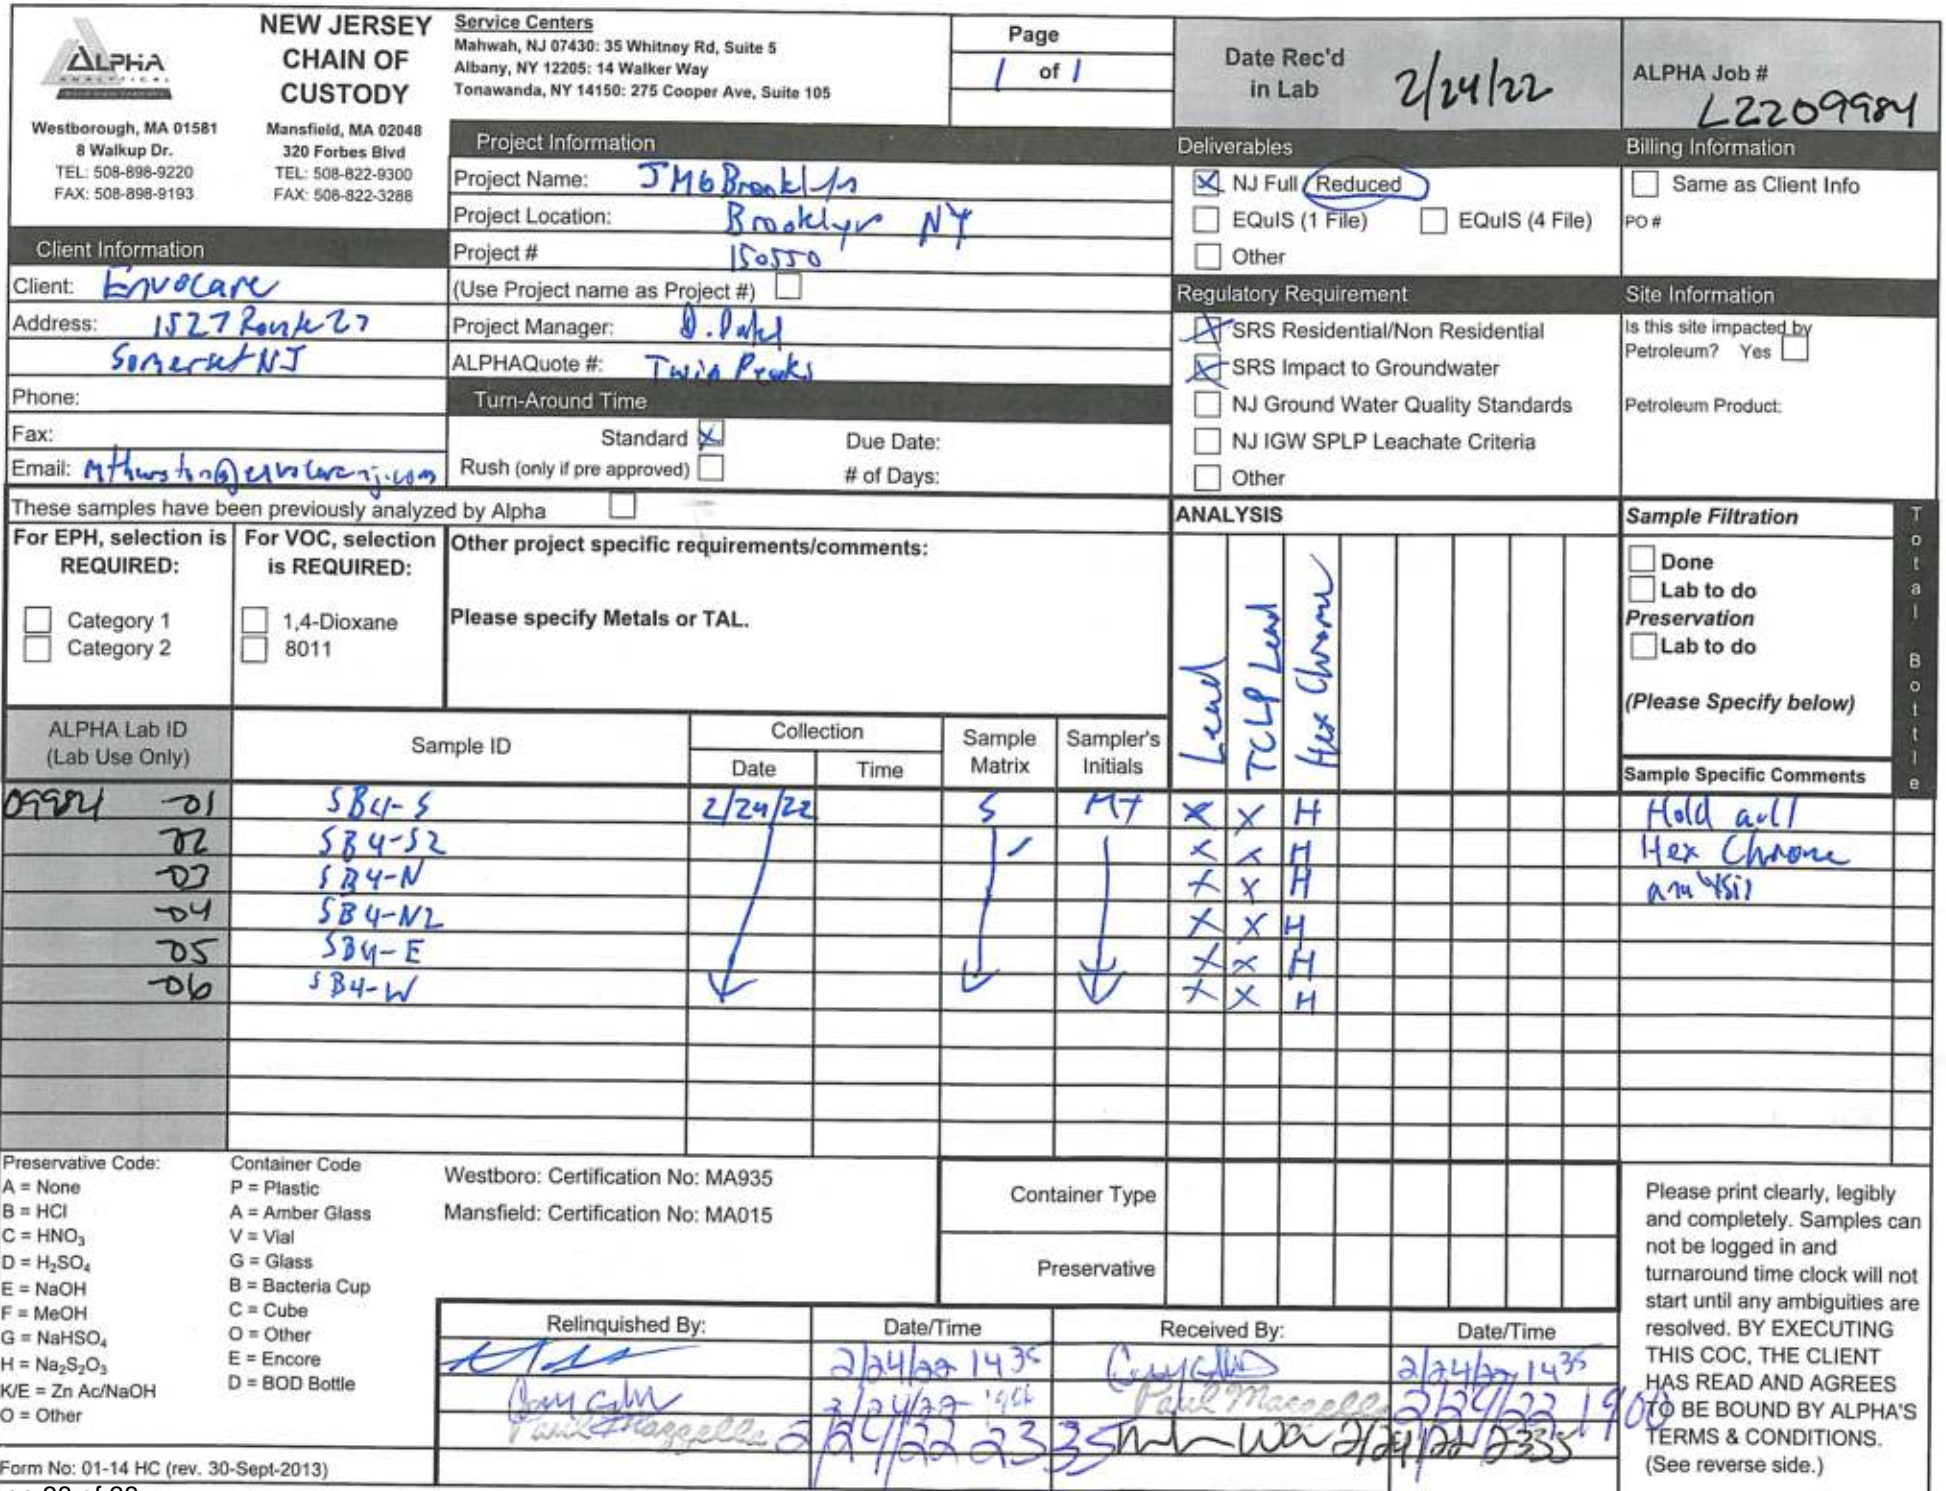 ALPHA
ANALYTICAL
Westborough, MA 01581
8 Walkup Dr.
TEL: 508-898-9220
FAX: 508-898-9193
NEW JERSEY
CHAIN OF
CUSTODY
Mansfield, MA 02048
320 Forbes Blvd
TEL: 508-822-9300
FAX: 508-822-3288
Service Centers
Mahwah, NJ 07430: 35 Whitney Rd, Suite 5
Albany, NY 12205: 14 Walker Way
Tonawanda, NY 14150: 275 Cooper Ave, Suite 105
Page
1 of 1
Date Rec'd
in Lab 2/24/22
ALPHA Job #
L2209984
Project Information
Project Name: JMG Brooklyn
Project Location: Brooklyn NY
Project # 150550
(Use Project name as Project #)
Project Manager:
ALPHAQuote #: Twin Peaks
Turn-Around Time
Standard X Due Date:
Rush (only if pre approved) # of Days:
Deliverables
X NJ Full Reduced
EQuIS (1 File) EQuIS (4 File)
Other
Billing Information
Same as Client Info
PO #
Client Information
Client: Envocare
Address: 1527 Route 27
Somerset NJ
Phone:
Fax:
Email:
Regulatory Requirement
X SRS Residential/Non Residential
X SRS Impact to Groundwater
NJ Ground Water Quality Standards
NJ IGW SPLP Leachate Criteria
Other
Site Information
Is this site impacted by
Petroleum? Yes
Petroleum Product:
These samples have been previously analyzed by Alpha
For EPH, selection is
REQUIRED:
Category 1
Category 2
For VOC, selection
is REQUIRED:
1,4-Dioxane
8011
Other project specific requirements/comments:
Please specify Metals or TAL.
ANALYSIS
Lead
TCLP Lead
Hex Chrome
Sample Filtration
Done
Lab to do
Preservation
Lab to do
(Please Specify below)
Sample Specific Comments
Total Bottle
ALPHA Lab ID
(Lab Use Only)
Sample ID
Collection
Date Time
Sample
Matrix
Sampler's
Initials
09984 -01 SB4-S 2/24/22 S MT X X H Hold all
-02 SB4-S2 X X H Hex Chrome
-03 SB4-N X X H analysis
-04 SB4-N2 X X H
-05 SB4-E X X H
-06 SB4-W X X H
Preservative Code:
A = None
B = HCl
C = HNO3
D = H2SO4
E = NaOH
F = MeOH
G = NaHSO4
H = Na2S2O3
K/E = Zn Ac/NaOH
O = Other
Container Code
P = Plastic
A = Amber Glass
V = Vial
G = Glass
B = Bacteria Cup
C = Cube
O = Other
E = Encore
D = BOD Bottle
Westboro: Certification No: MA935
Mansfield: Certification No: MA015
Container Type
Preservative
Relinquished By: Date/Time Received By: Date/Time
2/24/22 1435 2/24/22 1435
2/24/22 Paul 2/24/22 1900
Paul 2/24/22 2335 2/24/22 2335
Please print clearly, legibly
and completely. Samples can
not be logged in and
turnaround time clock will not
start until any ambiguities are
resolved. BY EXECUTING
THIS COC, THE CLIENT
HAS READ AND AGREES
TO BE BOUND BY ALPHA'S
TERMS & CONDITIONS.
(See reverse side.)
Form No: 01-14 HC (rev. 30-Sept-2013)